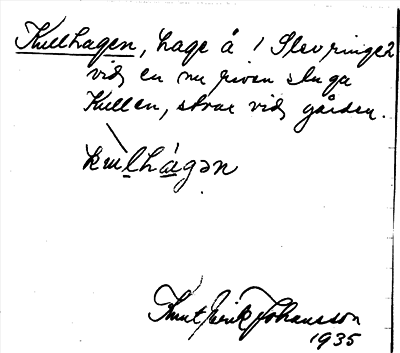 Kullhagen, hage å 1 Slevringe 2
vid en nu riven stuga
Kullen, strax vid gården.
kulhagən
Knut Erik Johansson
1935